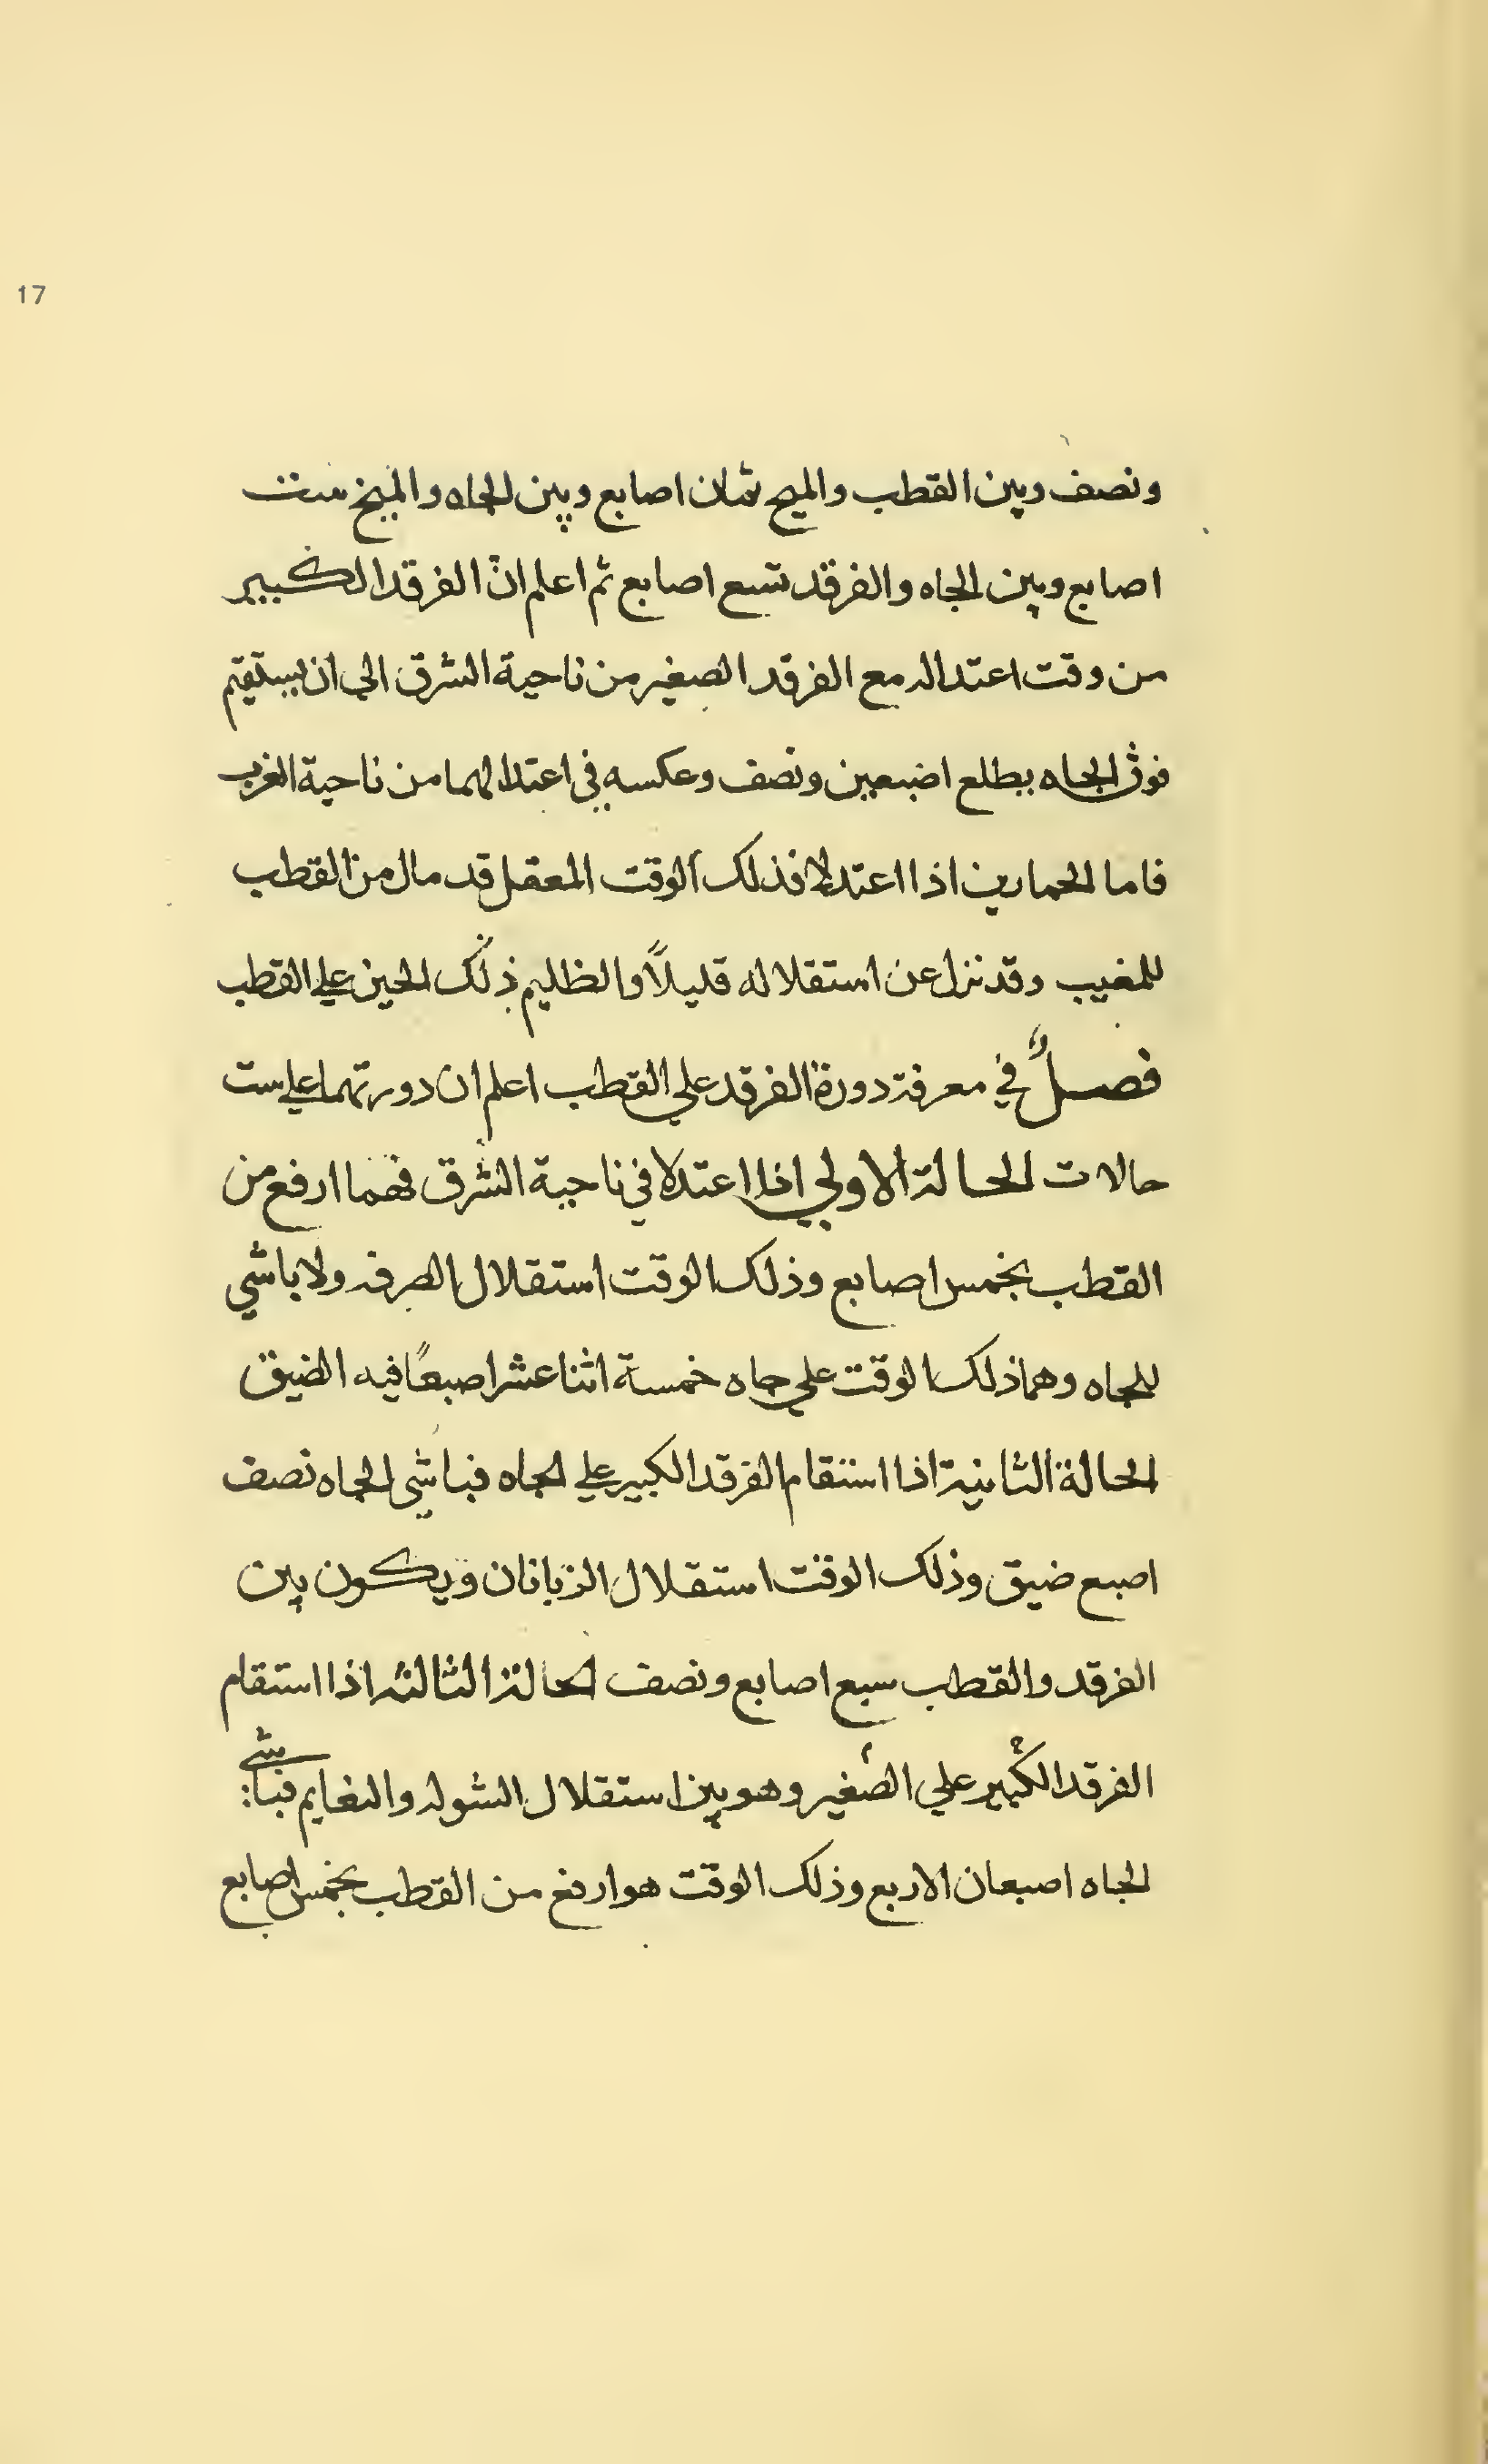 17
ونصف وبين القطب والميخ ثمان اصابع وبين الجاه والميخ ست
اصابع وبين الجاه والفرقد تسع اصابع ثم اعلم انّ الفرقد الكبير
من وقت اعتداله مع الفرقد الصغير من ناحية الشرق الي ان يستقيم
فوق الجاه يطلع اصبعين ونصف وعكسه في اعتدالهما من ناحية الغرب
فاما الحمارين اذا اعتدلا فذلك الوقت المعقل قد مال من القطب
للمغيب وقد نزل عن استقلاله قليلاً والظليم ذلك الحين علي القطب
فصلٌ في معرفة دورة الفرقد علي القطب اعلم ان دورتهما علي ست
حالات الحالة الاولي اذا اعتدلا في ناحية الشرق فهما ارفع من
القطب بخمس اصابع وذلك الوقت استقلال الصرفه ولا باشي
للجاه وهما ذلك الوقت علي جاه خمسة اثنا عشر اصبعًا فيه الضيق
الحالة الثانية اذا استقام الفرقد الكبير علي الجاه فباشي الجاه نصف
اصبع ضيق وذلك الوقت استقلال الزبانان ويكون بين
الفرقد والقطب سبع اصابع ونصف الحالة الثالثه اذا استقام
الفرقد الكبير علي الصغير وهو بين استقلال الشوله والنعايم فباشي
الجاه اصبعان الاربع وذلك الوقت هو ارفع من القطب بخمس اصابع